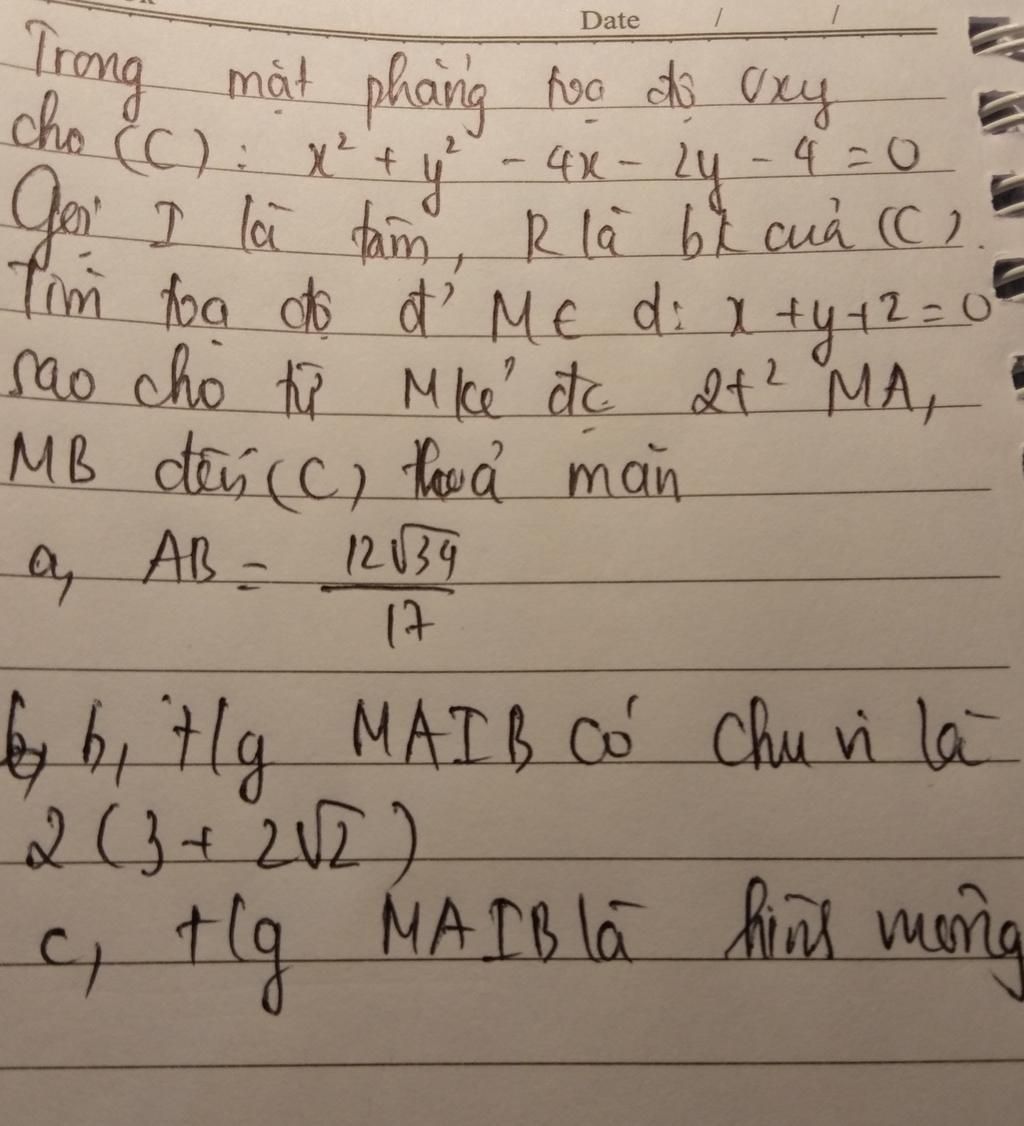 Date / /
Trong mặt phẳng toạ độ Oxy
cho (C): x² + y² - 4x - 2y - 4 = 0
Gọi I là tâm, R là bk của (C).
Tìm toạ độ đ' M ∈ d: x + y + 2 = 0
sao cho từ M kẻ đc 2t² MA,
MB đến (C) thoả mãn
a, AB = 12√34 / 17
b, t/g MAIB có chu vi là
2(3 + 2√2)
c, t/g MAIB là hình vuông